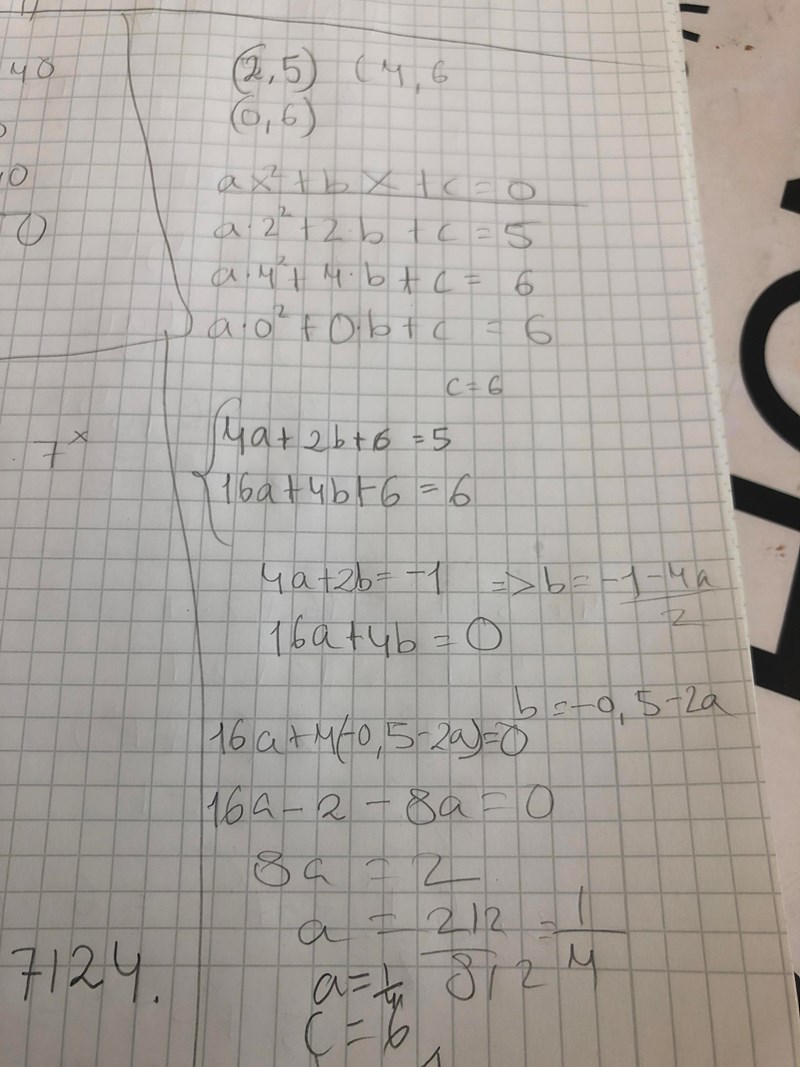 40
0
(2,5) (4,6
(0,6)
ax² + bx + c = 0
a·2² + 2·b + c = 5
a·4² + 4·b + c = 6
a·0² + 0·b + c = 6
c = 6
7ˣ
4a + 2b + 6 = 5
16a + 4b + 6 = 6
4a + 2b = -1 => b = (-1-4a)/2
16a + 4b = 0
b = -0,5-2a
16a + 4(-0,5-2a) = 0
16a - 2 - 8a = 0
8a = 2
a = 2/2 / 8/2 = 1/4
7124.
a = 1/4
c = 6